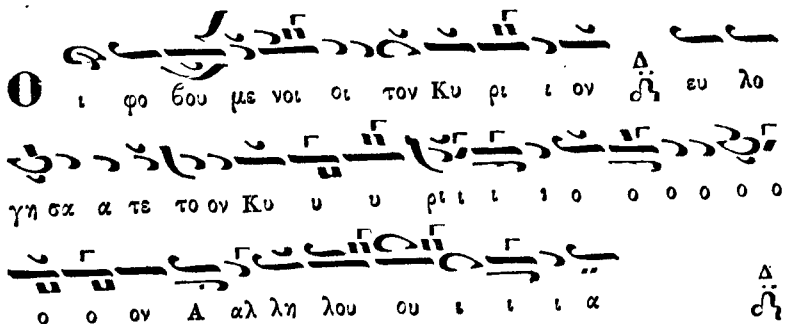 Ο ι φο βου με νοι οι τον Κυ ρι ι ον Δ ευ λο
γη σα α τε το ον Κυ υ υ ρι ι ι ι ο ο ο ο ο ο
ο ο ον Α αλ λη λου ου ι ι ι α Δ